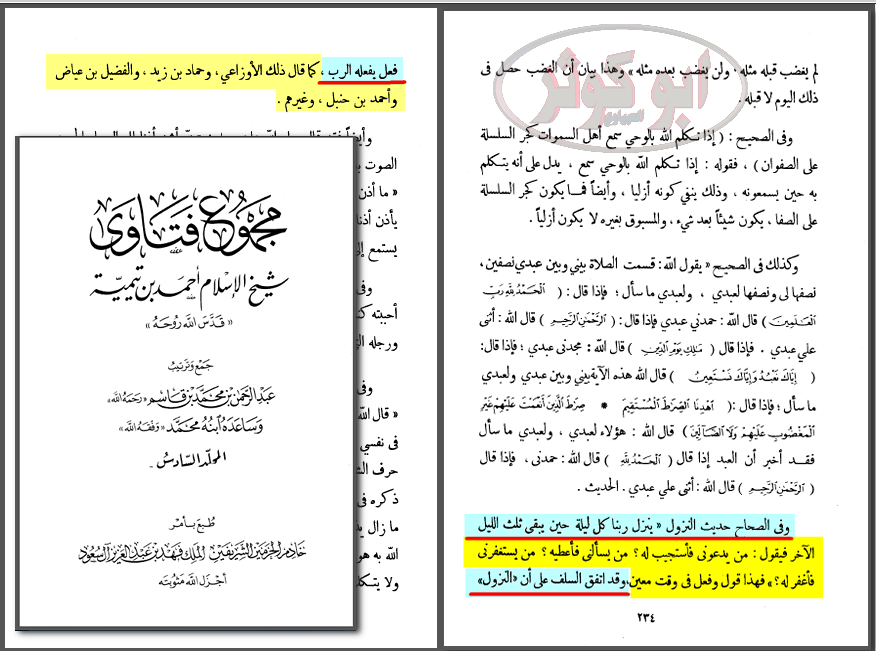 ابو كوثر
لم يغضب قبله مثله . ولن يغضب بعده مثله » وهذا بيان أن الغضب حصل فى
ذلك اليوم لا قبله .
وفى الصحيح : ( إذا تكلم الله بالوحي سمع أهل السموات كجر السلسلة
على الصفوان ) ، فقوله : إذا تكلم اللّٰه بالوحي سمع ، يدل على أنه يتكلم
به حين يسمعونه ، وذلك ينفي كونه أزليا ، وأيضاً فما يكون كجر السلسلة
على الصفا ، يكون شيئاً بعد شيء ، والمسبوق بغيره لا يكون أزلياً .
وكذلك فى الصحيح « يقول اللّٰه : قسمت الصلاة بيني وبين عبدي نصفين ،
نصفها لى ونصفها لعبدي ، ولعبدي ما سأل ؛ فإذا قال : ( الْحَمْدُ لِلَّهِ رَبِّ
الْعَالَمِينَ ) قال اللّٰه : حمدني عبدي فإذا قال : ( الرَّحْمَٰنِ الرَّحِيمِ ) قال اللّٰه : أثنى
علي عبدي . فإذا قال ( مَالِكِ يَوْمِ الدِّينِ ) قال اللّٰه : مجدني عبدي ؛ فإذا قال :
( إِيَّاكَ نَعْبُدُ وَإِيَّاكَ نَسْتَعِينُ ) قال اللّٰه هذه الآية بيني وبين عبدي ولعبدي
ما سأل ؛ فإذا قال : ( اهْدِنَا الصِّرَاطَ الْمُسْتَقِيمَ * صِرَاطَ الَّذِينَ أَنْعَمْتَ عَلَيْهِمْ غَيْرِ
الْمَغْضُوبِ عَلَيْهِمْ وَلَا الضَّالِّينَ ) قال اللّٰه : هؤلاء لعبدي ، ولعبدي ما سأل
فقد أخبر أن العبد إذا قال ( الْحَمْدُ لِلَّهِ ) قال اللّٰه : حمدنى ، فإذا قال
( الرَّحْمَٰنِ الرَّحِيمِ ) قال اللّٰه : أثنى علي عبدي . الحديث .
وفى الصحاح حديث النزول « ينزل ربنا كل ليلة حين يبقى ثلث الليل
الآخر فيقول : من يدعونى فأستجيب له ؟ من يسألنى فأعطيه ؟ من يستغفرنى
فأغفر له ؟ » فهذا قول وفعل فى وقت معين ، وقد اتفق السلف على أن « النزول »
٢٣٤
فعل يفعله الرب ، كما قال ذلك الأوزاعي ، وحماد بن زيد ، والفضيل بن عياض
وأحمد بن حنبل ، وغيرهم .
الصوت
« ما أذن
يأذن
يستمع
وفى
أحببته
ورجله
وفى
« قال الله
فى نفسي
حرف
ذكره فى
ما زال
الله به
ولا
مجموع فتاوى
شيخ الإسلام أحمد بن تيمية
« قدس الله روحه »
جمع وترتيب
عبد الرحمن بن محمد بن قاسم « رحمه الله »
وساعده ابنه محمد « وفقه الله »
المجلد السادس
طبع بأمر
خادم الحرمين الشريفين الملك فهد بن عبد العزيز آل سعود
أجزل الله مثوبته